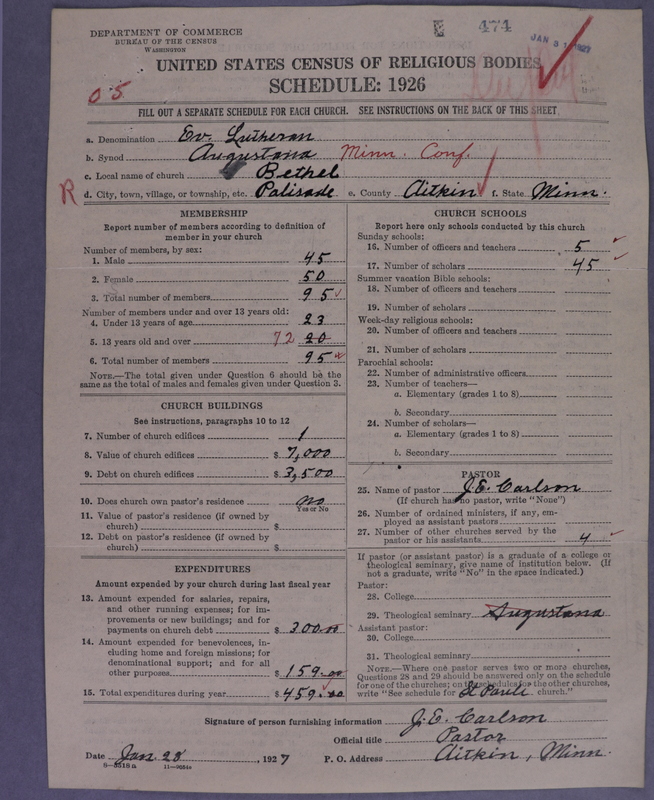 DEPARTMENT OF COMMERCE
BUREAU OF THE CENSUS
WASHINGTON
474
JAN 31 1927
UNITED STATES CENSUS OF RELIGIOUS BODIES
SCHEDULE: 1926
O S.
FILL OUT A SEPARATE SCHEDULE FOR EACH CHURCH. SEE INSTRUCTIONS ON THE BACK OF THIS SHEET
a. Denomination Ev. Lutheran
b. Synod Augustana Minn. Conf.
c. Local name of church Bethel
R d. City, town, village, or township, etc. Palisade e. County Aitkin f. State Minn.
MEMBERSHIP
Report number of members according to definition of
member in your church
Number of members, by sex:
1. Male 45
2. Female 50
3. Total number of members 95
Number of members under and over 13 years old:
4. Under 13 years of age 23
5. 13 years old and over 72 20
6. Total number of members 95
NOTE.—The total given under Question 6 should be the
same as the total of males and females given under Question 3.
CHURCH BUILDINGS
See instructions, paragraphs 10 to 12
7. Number of church edifices 1
8. Value of church edifices $ 7,000
9. Debt on church edifices $ 3,500
10. Does church own pastor's residence no
Yes or No
11. Value of pastor's residence (if owned by
church) $
12. Debt on pastor's residence (if owned by
church) $
EXPENDITURES
Amount expended by your church during last fiscal year
13. Amount expended for salaries, repairs,
and other running expenses; for im-
provements or new buildings; and for
payments on church debt $ 300.00
14. Amount expended for benevolences, in-
cluding home and foreign missions; for
denominational support; and for all
other purposes $ 159.00
15. Total expenditures during year $ 459.00
CHURCH SCHOOLS
Report here only schools conducted by this church
Sunday schools:
16. Number of officers and teachers 5
17. Number of scholars 45
Summer vacation Bible schools:
18. Number of officers and teachers
19. Number of scholars
Week-day religious schools:
20. Number of officers and teachers
21. Number of scholars
Parochial schools:
22. Number of administrative officers
23. Number of teachers—
a. Elementary (grades 1 to 8)
b. Secondary
24. Number of scholars—
a. Elementary (grades 1 to 8)
b. Secondary
PASTOR
25. Name of pastor J. E. Carlson
(If church has no pastor, write "None")
26. Number of ordained ministers, if any, em-
ployed as assistant pastors
27. Number of other churches served by the
pastor or his assistants 4
If pastor (or assistant pastor) is a graduate of a college or
theological seminary, give name of institution below. (If
not a graduate, write "No" in the space indicated.)
Pastor:
28. College
29. Theological seminary Augustana
Assistant pastor:
30. College
31. Theological seminary
NOTE.—Where one pastor serves two or more churches,
Questions 28 and 29 should be answered only on the schedule
for one of the churches; on the schedules for the other churches,
write "See schedule for St Pauli church."
Signature of person furnishing information J. E. Carlson
Official title Pastor
Date Jan. 28, 1927 P. O. Address Aitkin, Minn.
8—5516a 11—9654a